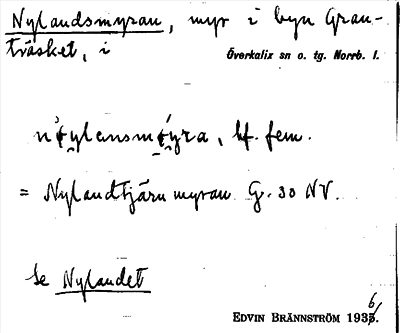 Nylandsmyran, myr i byn Gran-
träsket, i
Överkalix sn o. tg. Norrb. l.
bf. fem.
= Nylandtjärnmyran G. 30 NV.
Se Nylandet
EDVIN BRÄNNSTRÖM 1936.